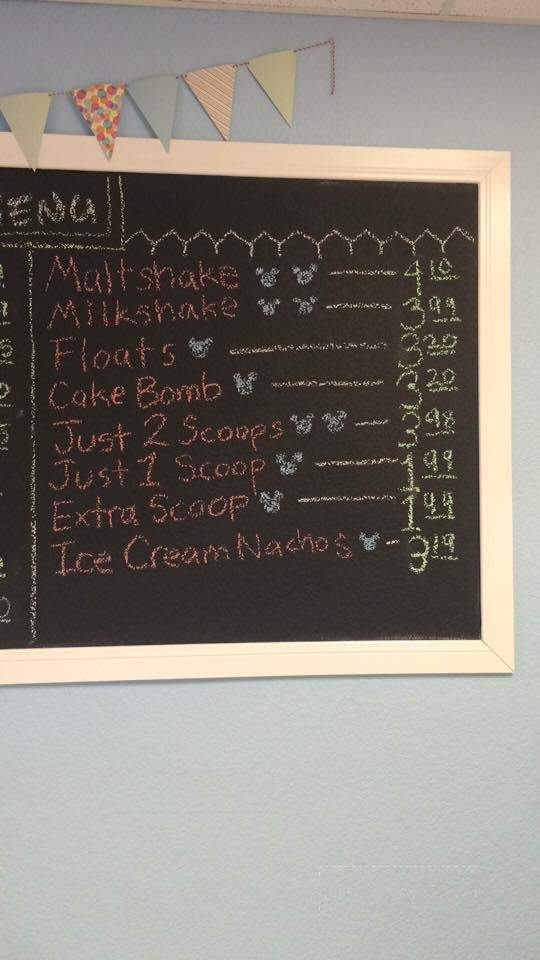 MENU
Maltshake 4 10
Milkshake 3 99
Floats 3 20
Cake Bomb 3 20
Just 2 Scoops 3 98
Just 1 Scoop 1 99
Extra Scoop 1 99
Ice Cream Nachos 3 19